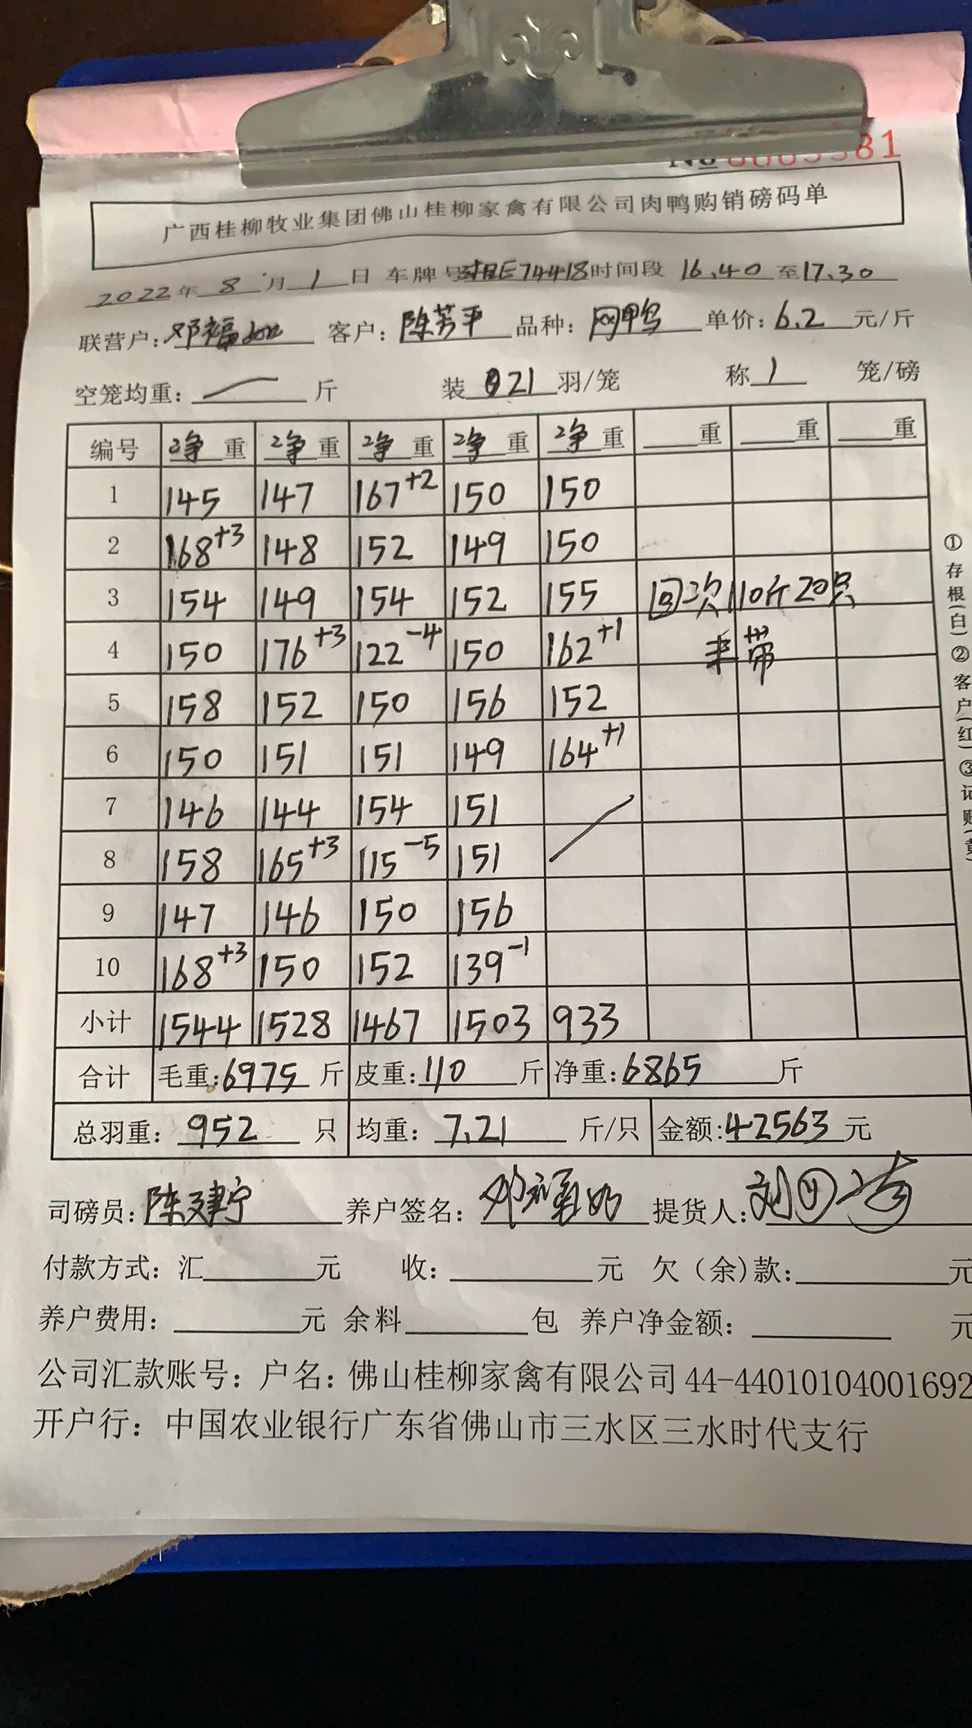 No 0005581
广西桂柳牧业集团佛山桂柳家禽有限公司肉鸭购销磅码单
2022年 8 月 1 日 车牌号 E74418 时间段 16.40 至 17.30
联营户: 邓福 客户: 陈芳平 品种: 网鸭 单价: 6.2 元/斤
空笼均重: 斤 装 21 羽/笼 称 1 笼/磅
编号 净 重 净 重 净 重 净 重 净 重 重 重 重
1 145 147 167+2 150 150
2 168+3 148 152 149 150
3 154 149 154 152 155 回次110斤20只
4 150 176+3 122-4 150 162+1 未带
5 158 152 150 156 152
6 150 151 151 149 164+1
7 146 144 154 151
8 158 165+3 115-5 151
9 147 146 150 156
10 168+3 150 152 139-1
小计 1544 1528 1467 1503 933
合计 毛重: 6975 斤 皮重: 110 斤 净重: 6865 斤
总羽重: 952 只 均重: 7.21 斤/只 金额: 42563 元
司磅员: 陈建宁 养户签名: 提货人: 刘
付款方式: 汇 元 收: 元 欠（余）款: 元
养户费用: 元 余料 包 养户净金额: 元
公司汇款账号: 户名: 佛山桂柳家禽有限公司 44-44010104001692
开户行: 中国农业银行广东省佛山市三水区三水时代支行
①存根(白)②客户(红)③记账(黄)